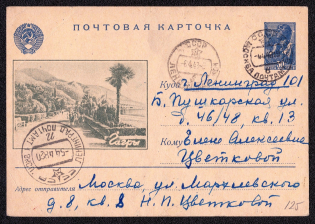 ПОЧТОВАЯ КАРТОЧКА
Куда г. Ленинград 101
Б. Пушкарская ул.
д. 46/48, кв. 13
Кому Елене Алексеевне
Цветковой
Гагры
Адрес отправителя Москва, ул. Мархлевского
д. 8, кв. 8 Н. П. Цветковой
125